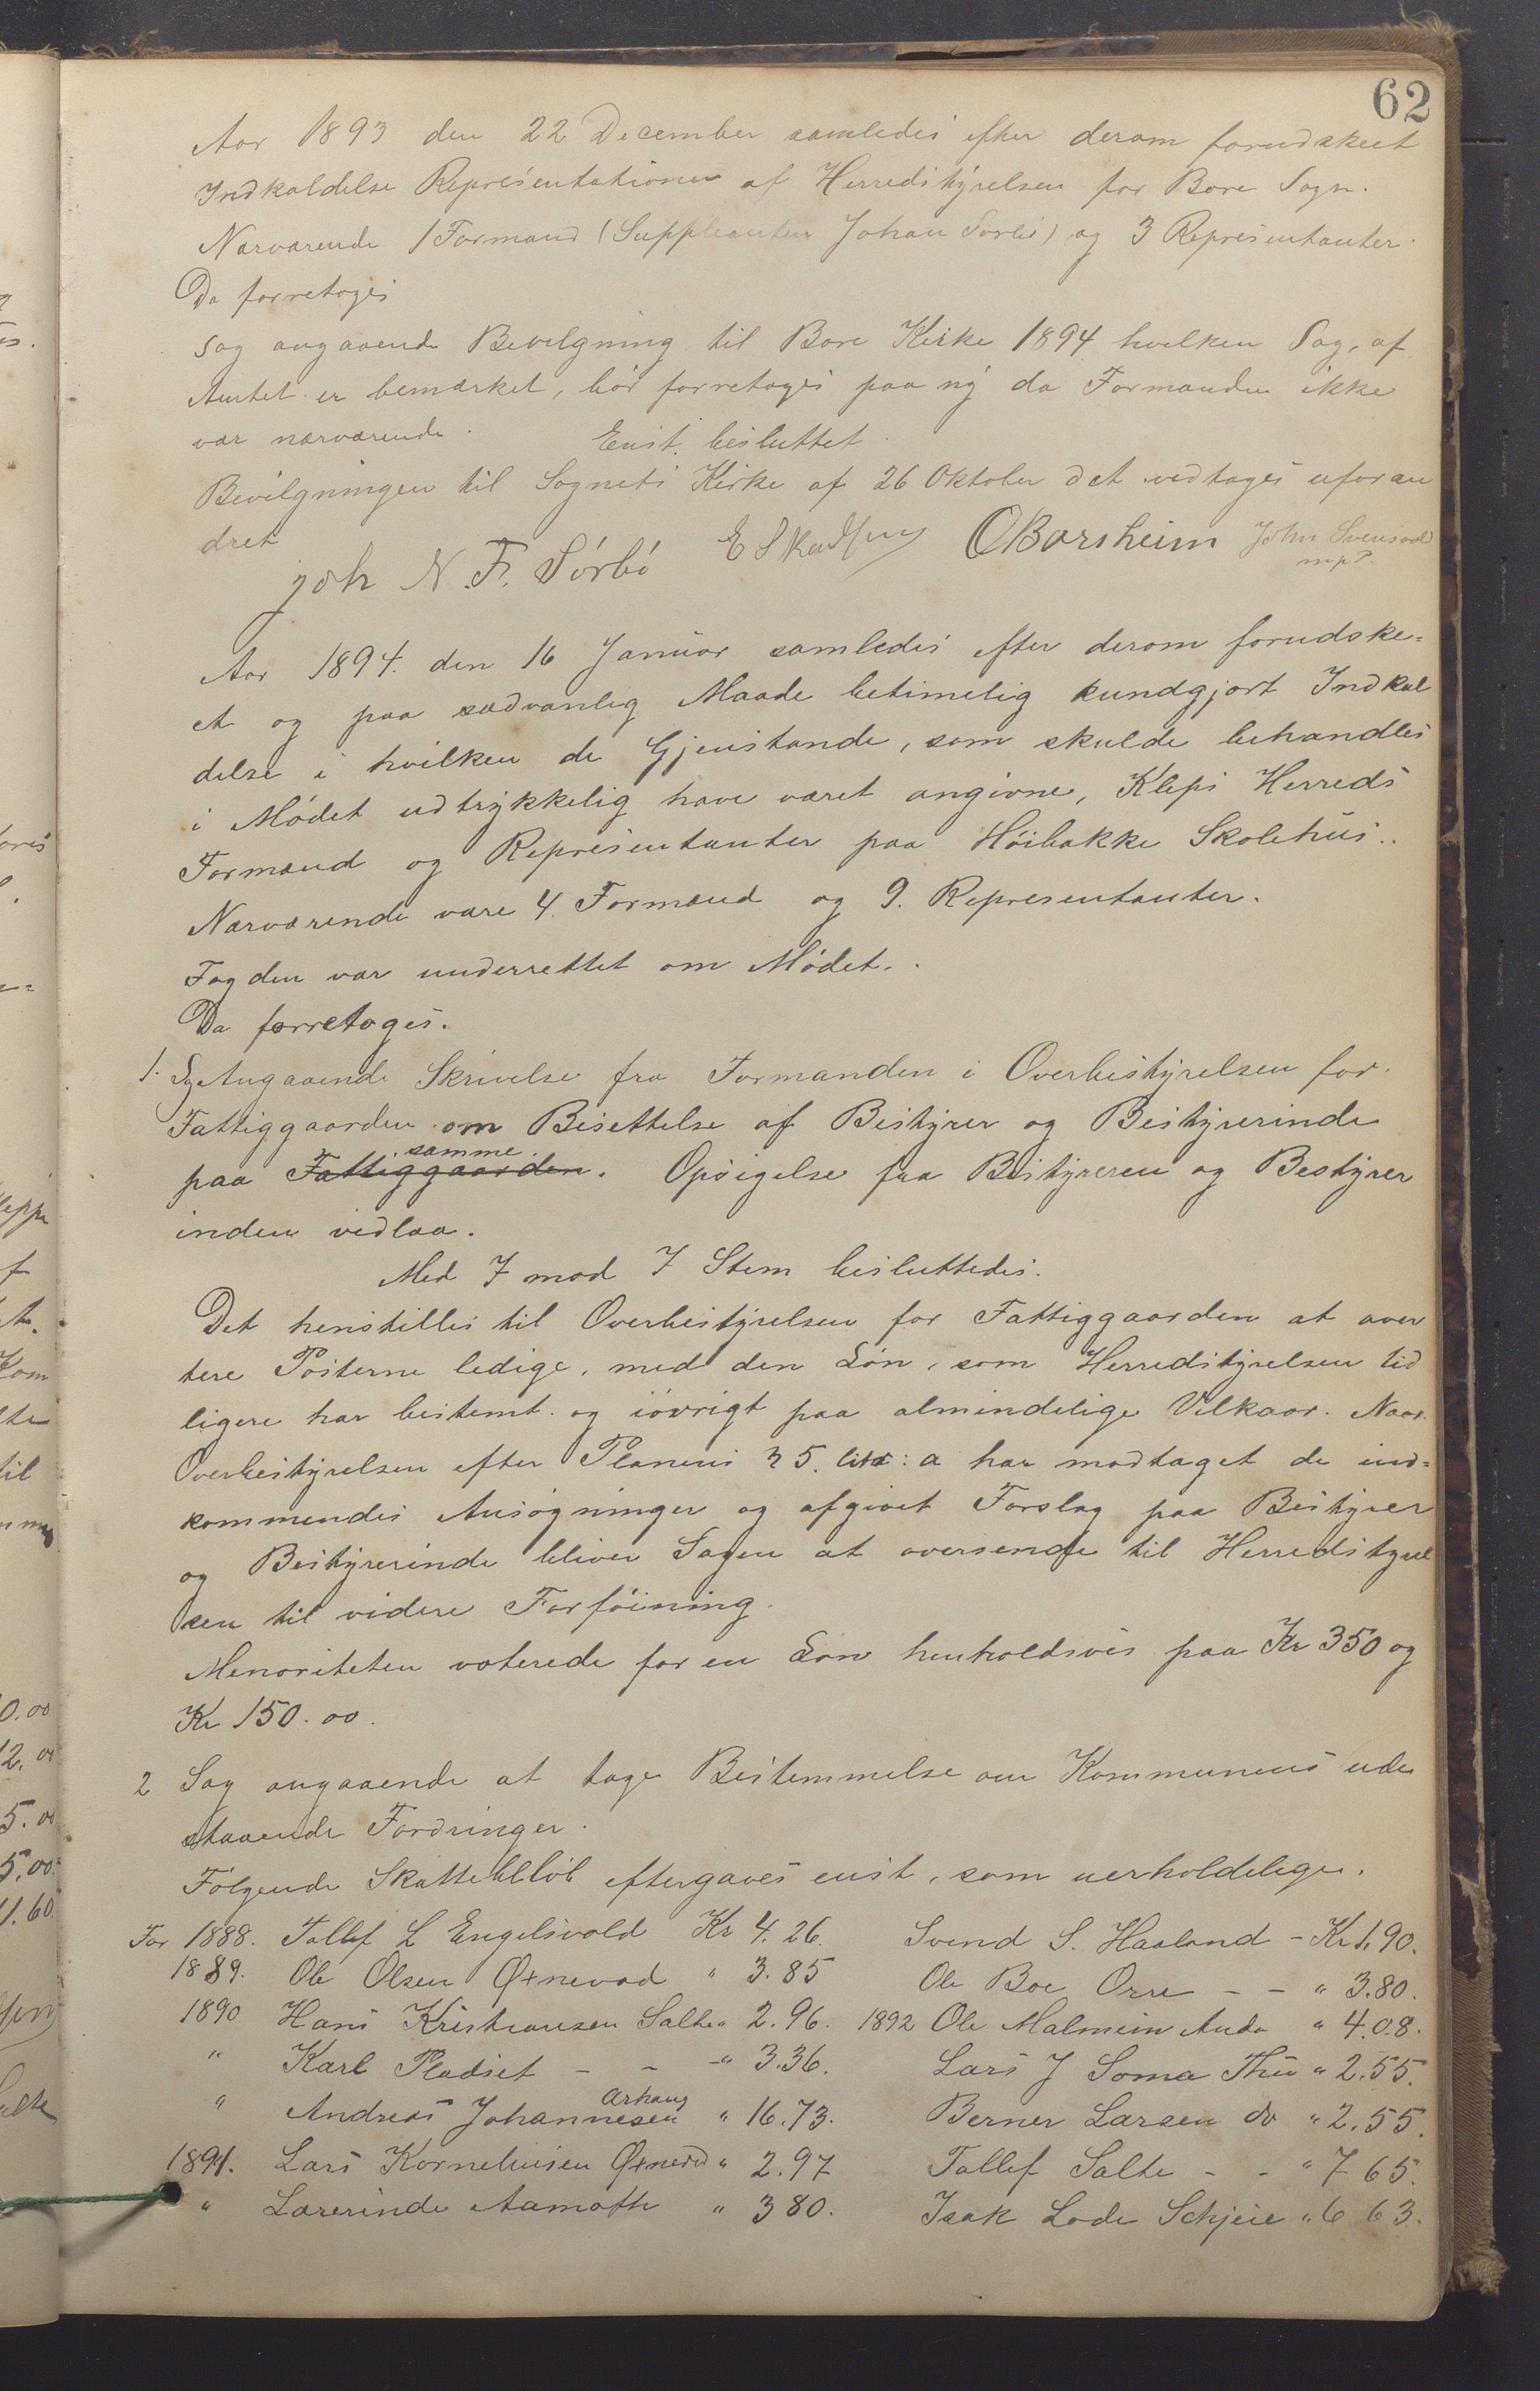 62
Aar 1893 den 22 December samledes efter derom forudskeet
Indkaldelse Representationen af Herredstyrelsen for Bore Sogn.
Nærværende 1 Formand (Suppleanten Johan Sørbø) og 3 Representanter.
Da forretoges
Sag angaaende Bevilgning til Bore Kirke 1894 hvilken Sag, af
Amtet er bemærket, bør forretoges paa ny da Formanden ikke
var nærværende. Enst. besluttet.
Bevilgningen til Sognets Kirke af 26 Oktober d A vedtages uforan
dret
Joh N. F. Sörbö O Borsheim John Svensvold
mpP.
Aar 1894. den 16 Januar samledes efter derom forudske=
et og paa sædvanlig Maade betimelig kundgjort Indkal
delse i hvilken de Gjenstande, som skulde behandles
i Mödet udtrykkelig have været angivne, Kleps Herreds
Formænd og Representanter paa Höibakke Skolehus..
Nærværende vare 4. Formænd og 9. Representanter.
Fogden var underrettet om Mödet..
Da forretoges.
1. Sag Angaaende Skrivelse fra Formanden i Overbestyrelsen for.
Fattiggaarden om Besettelse af Bestyrer og Bestyrerinde
samme.
paa Fattiggaarden. Opsigelse fra Bestyreren og Bestyrer
inden vedlaa.
Med 7 mod 7 Stem besluttedes.
Det henstilles til Overbestyrelsen for Fattiggaarden at aver
tere Posterne ledige, med den Lön, som Herredstyrelsen tid
ligere har bestemt. og iövrigt paa almindelige Vilkaar. Naar.
Overbestyrelsen efter Planens § 5. litr: a har modtaget de ind=
kommendes Ansögninger og afgivet Forslag paa Bestyrer
og Bestyrerinde bliver Sagen at oversende til Herredstyrel
sen til videre Forföining.
Menoriteten voterede for en Lön henholdsvis paa Kr 350 og
Kr 150.00.
2 Sag angaaende at tage Bestemmelse om Kommunens ude
staaende Fordringer.
Fölgende Skattebelöb eftergaves enst, som uerholdelege.
For 1888. Tollef L Engelsvold Kr 4.26. Svend S. Haaland - Kr 1.90.
1889. Ole Olsen Øxnevad " 3.85 Ole Boe Orre - - " 3.80.
1890 Hans Kristiansen Salte " 2.96. 1892 Ole Malmein Anda " 4.08.
" Karl Pladset - - - " 3.36. Lars J Soma Thu " 2.55.
Arhaug
" Andreas Johannesen " 16.73. Berner Larsen do " 2.55.
1891. Lars Korneliusen Øxnevd " 2.97 Tollef Salte - - " 7 65.
" Lærerinde Aamoth " 380. Isak Lode Schjeie " 6 63.